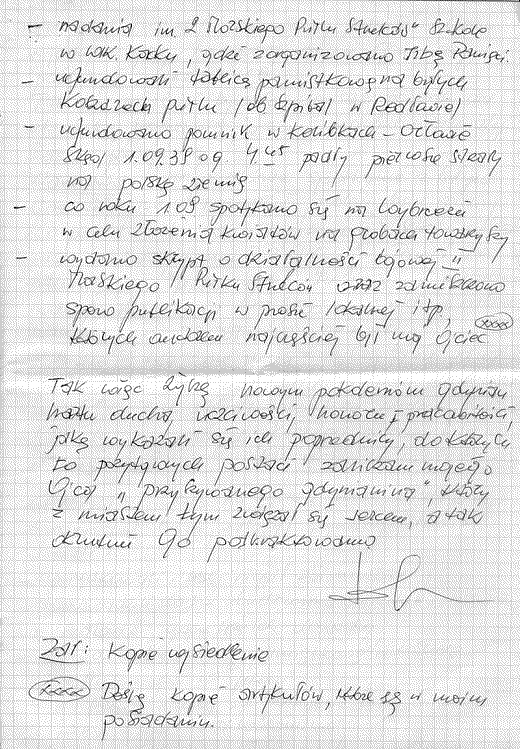 - nadania im. 2 Morskiego Pułku Strzelców" Szkole
w Wlk. Kacku, gdzie zorganizowano Izbę Pamięci.
- ufundowali tablicę pamiątkową na byłych
koszarach pułku (ob. szpital w Redłowie)
- ufundowano pomnik w Kolibkach - Orłowie
skąd 1.09.39 o g. 4.45 padły pierwsze strzały
na polską ziemię
- co roku 1.09 spotykano się na Wybrzeżu
w celu złożenia kwiatów na grobach towarzyszy
- wydano skrypt o działalności bojowej "
Morskiego Pułku Strzelców oraz zamieszczono
sporo publikacji w prasie lokalnej itp,
których autorem najczęściej był mój Ojciec (xxxx)
Tak więc życzę nowym pokoleniom gdynian
hartu ducha, uczciwości, honoru i pracowitości,
jaką wykazali się ich poprzednicy, do których
to pozytywnych postaci zaliczam mojego
Ojca „przybranego gdynianina", który
z miastem tym związał się sercem, a tak
okrutnie Go potraktowano
Zał: Kopie wysiedlenia
(xxxx) Dołączę kopie artykułów, które są w moim
posiadaniu.